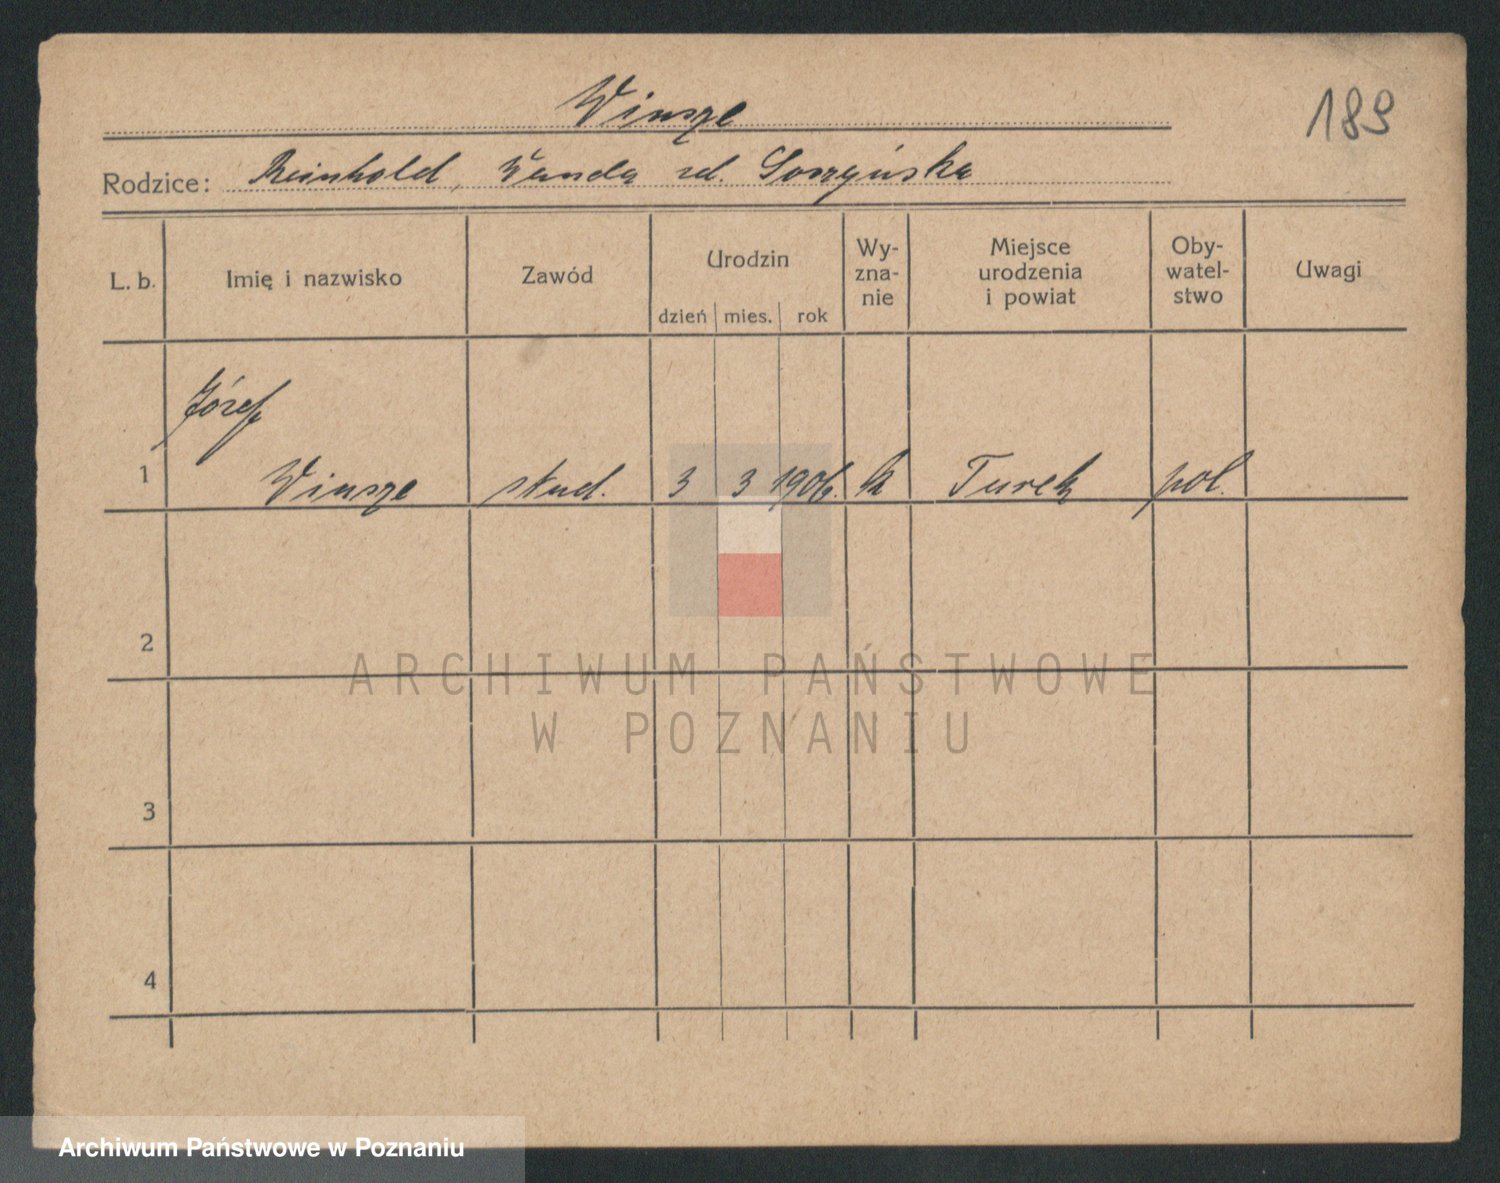 Winsze
189
Rodzice: Reinhold, Wanda zd. Soszyńska
L. b.
Imię i nazwisko
Zawód
Urodzin
dzień mies. rok
Wy-
zna-
nie
Miejsce
urodzenia
i powiat
Oby-
watel-
stwo
Uwagi
Józef
1 Winsze stud. 3 3 1906. k Turek pol.
2
3
4
ARCHIWUM PAŃSTWOWE
W POZNANIU
Archiwum Państwowe w Poznaniu